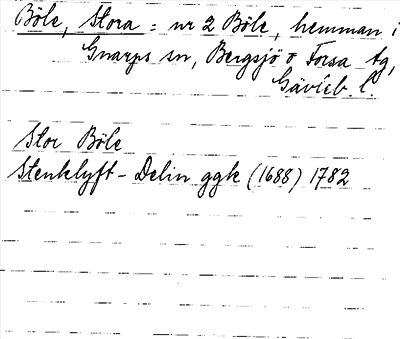 Böle, Stora = nr 2 Böle, hemman i
Gnarps sn, Bergsjö o Forsa tg,
Gävleb. l.
Stor Böle
Stenklyft - Delin ggk (1688) 1782